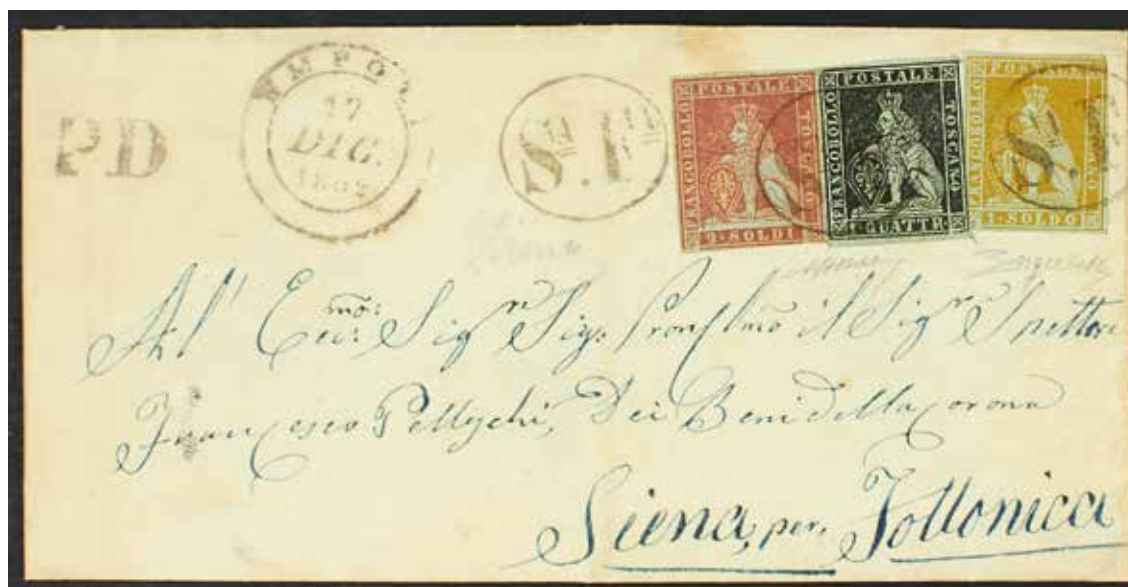 PD
EMPOLI
17
DIC.
1852
Sª. Fª.
FRANCOBOLLO POSTALE TOSCANO
2 • SOLDI
FRANCOBOLLO POSTALE TOSCANO
1 • QUATTR.
FRANCOBOLLO POSTALE TOSCANO
1 • SOLDO
Al' Ecc:mo: Sigr Sig: il Sigr
Francesco Dei Beni della Corona
Siena, per, Follonica